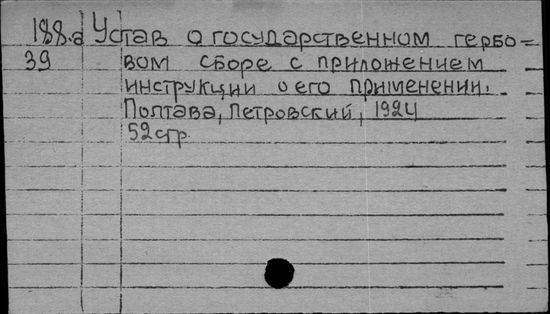 188.a Устав о государственном гербо=
39 вом сборе с приложением
инструкции о его применении.
Полтава, Петровский, 1924
52 стр.